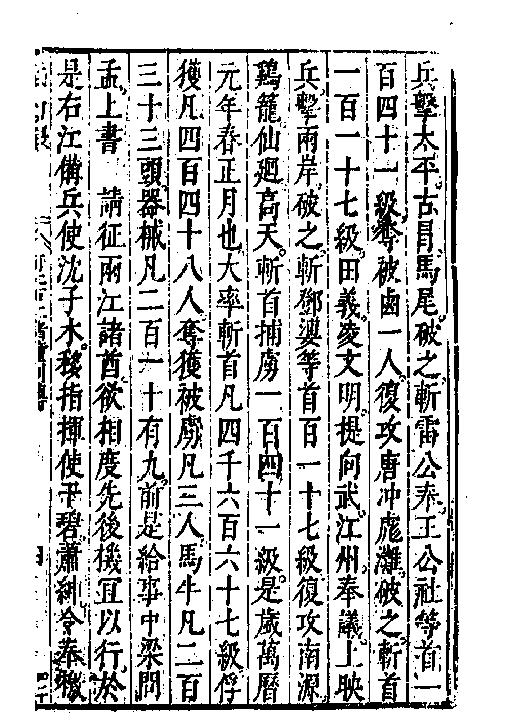 兵擊太平。古昌。馬尾。破之。斬雷公奉。王公社等首一
百四十一級。奪被鹵一人。復攻唐冲。厖灘。破之。斬首
一百一十七級。田義。凌文明。提向武。江州。奉議。上映
兵。擊兩岸。破之。斬鄧婆等首百一十七級。復攻南源。
鷄籠。仙廻。高天。斬首捕虜一百四十一級。是歲萬曆
元年春正月也。大率斬首凡四千六百六十七級。俘
獲凡四百四十八人。奪獲被虜凡三人。馬牛凡二百
三十三頭。器械凡二百一十有九。前是給事中梁問
孟。上書 請征兩江諸酋。欲相度先後機宜以行。於
是右江備兵使沈子木。移指揮使干碧。蕭紳。令奉檄